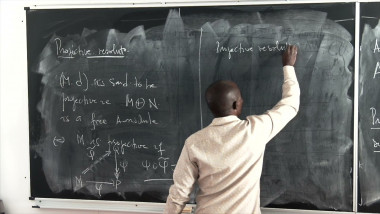 Projective resolut
(M, d) is said to be
projective M ⊕ N
is a free A-module
(=) M is projective if
φ ψ ψ∘φ
N P
Injective resolut